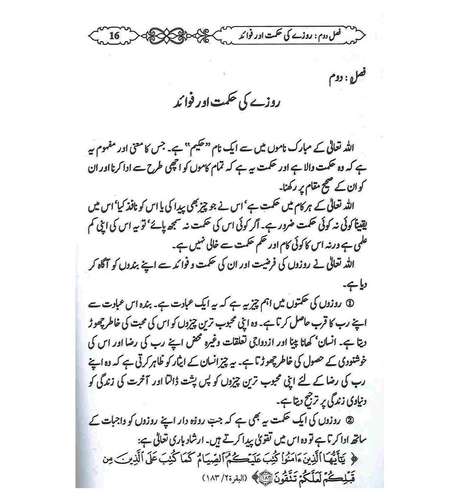 فصل دوم : روزے کی حکمت اور فوائد 16
فصل : دوم
روزے کی حکمت اور فوائد
اللہ تعالیٰ کے مبارک ناموں میں سے ایک نام ”حکیم“ ہے۔ جس کا معنی اور مفہوم یہ
ہے کہ وہ حکمت والا ہے اور حکمت یہ ہے کہ تمام کاموں کو اچھی طرح سے ادا کرنا اور
ان کو ان کے صحیح مقام پر رکھنا۔
اللہ تعالیٰ کے ہر کام میں حکمت ہے‘ اس نے جو چیز بھی پیدا کی یا اس کو نافذ کیا‘ اس میں
یقیناً کوئی نہ کوئی حکمت ضرور ہے۔ اگر کوئی اس کی حکمت نہ سمجھ پائے‘ تو یہ اس کی اپنی کم
علمی ہے ورنہ اس کا کوئی کام اور حکم حکمت سے خالی نہیں ہے۔
اللہ تعالیٰ نے روزوں کی فرضیت اور ان کی حکمت و فوائد سے اپنے بندوں کو آگاہ کر
دیا ہے۔
① روزوں کی حکمتوں میں اہم چیز یہ ہے کہ یہ ایک عبادت ہے۔ بندہ اس عبادت سے
اپنے رب کا قرب حاصل کرتا ہے۔ وہ اپنی محبوب ترین چیزوں کو اس کی محبت کی خاطر چھوڑ
دیتا ہے۔ انسان‘ کھانا پینا اور ازدواجی تعلقات وغیرہ محض اپنے رب کی رضا اور اس کی
خوشنودی کے حصول کی خاطر چھوڑتا ہے۔ یہ چیز انسان کے ایثار کو ظاہر کرتی ہے کہ وہ اپنے
رب کی رضا کے لئے اپنی محبوب ترین چیزوں کو پس پشت ڈالتا اور آخرت کی زندگی کو
دنیاوی زندگی پر ترجیح دیتا ہے۔
② روزوں کی ایک حکمت یہ بھی ہے کہ جب روزہ دار اپنے روزوں کو واجبات کے
ساتھ ادا کرتا ہے تو وہ اس میں تقویٰ پیدا کرتے ہیں۔ ارشاد باری تعالیٰ ہے:
﴿ يَٰٓأَيُّهَا ٱلَّذِينَ ءَامَنُوا۟ كُتِبَ عَلَيْكُمُ ٱلصِّيَامُ كَمَا كُتِبَ عَلَى ٱلَّذِينَ مِن
قَبْلِكُمْ لَعَلَّكُمْ تَتَّقُونَ ﴾ (البقرة ۲/ ۱۸۳)